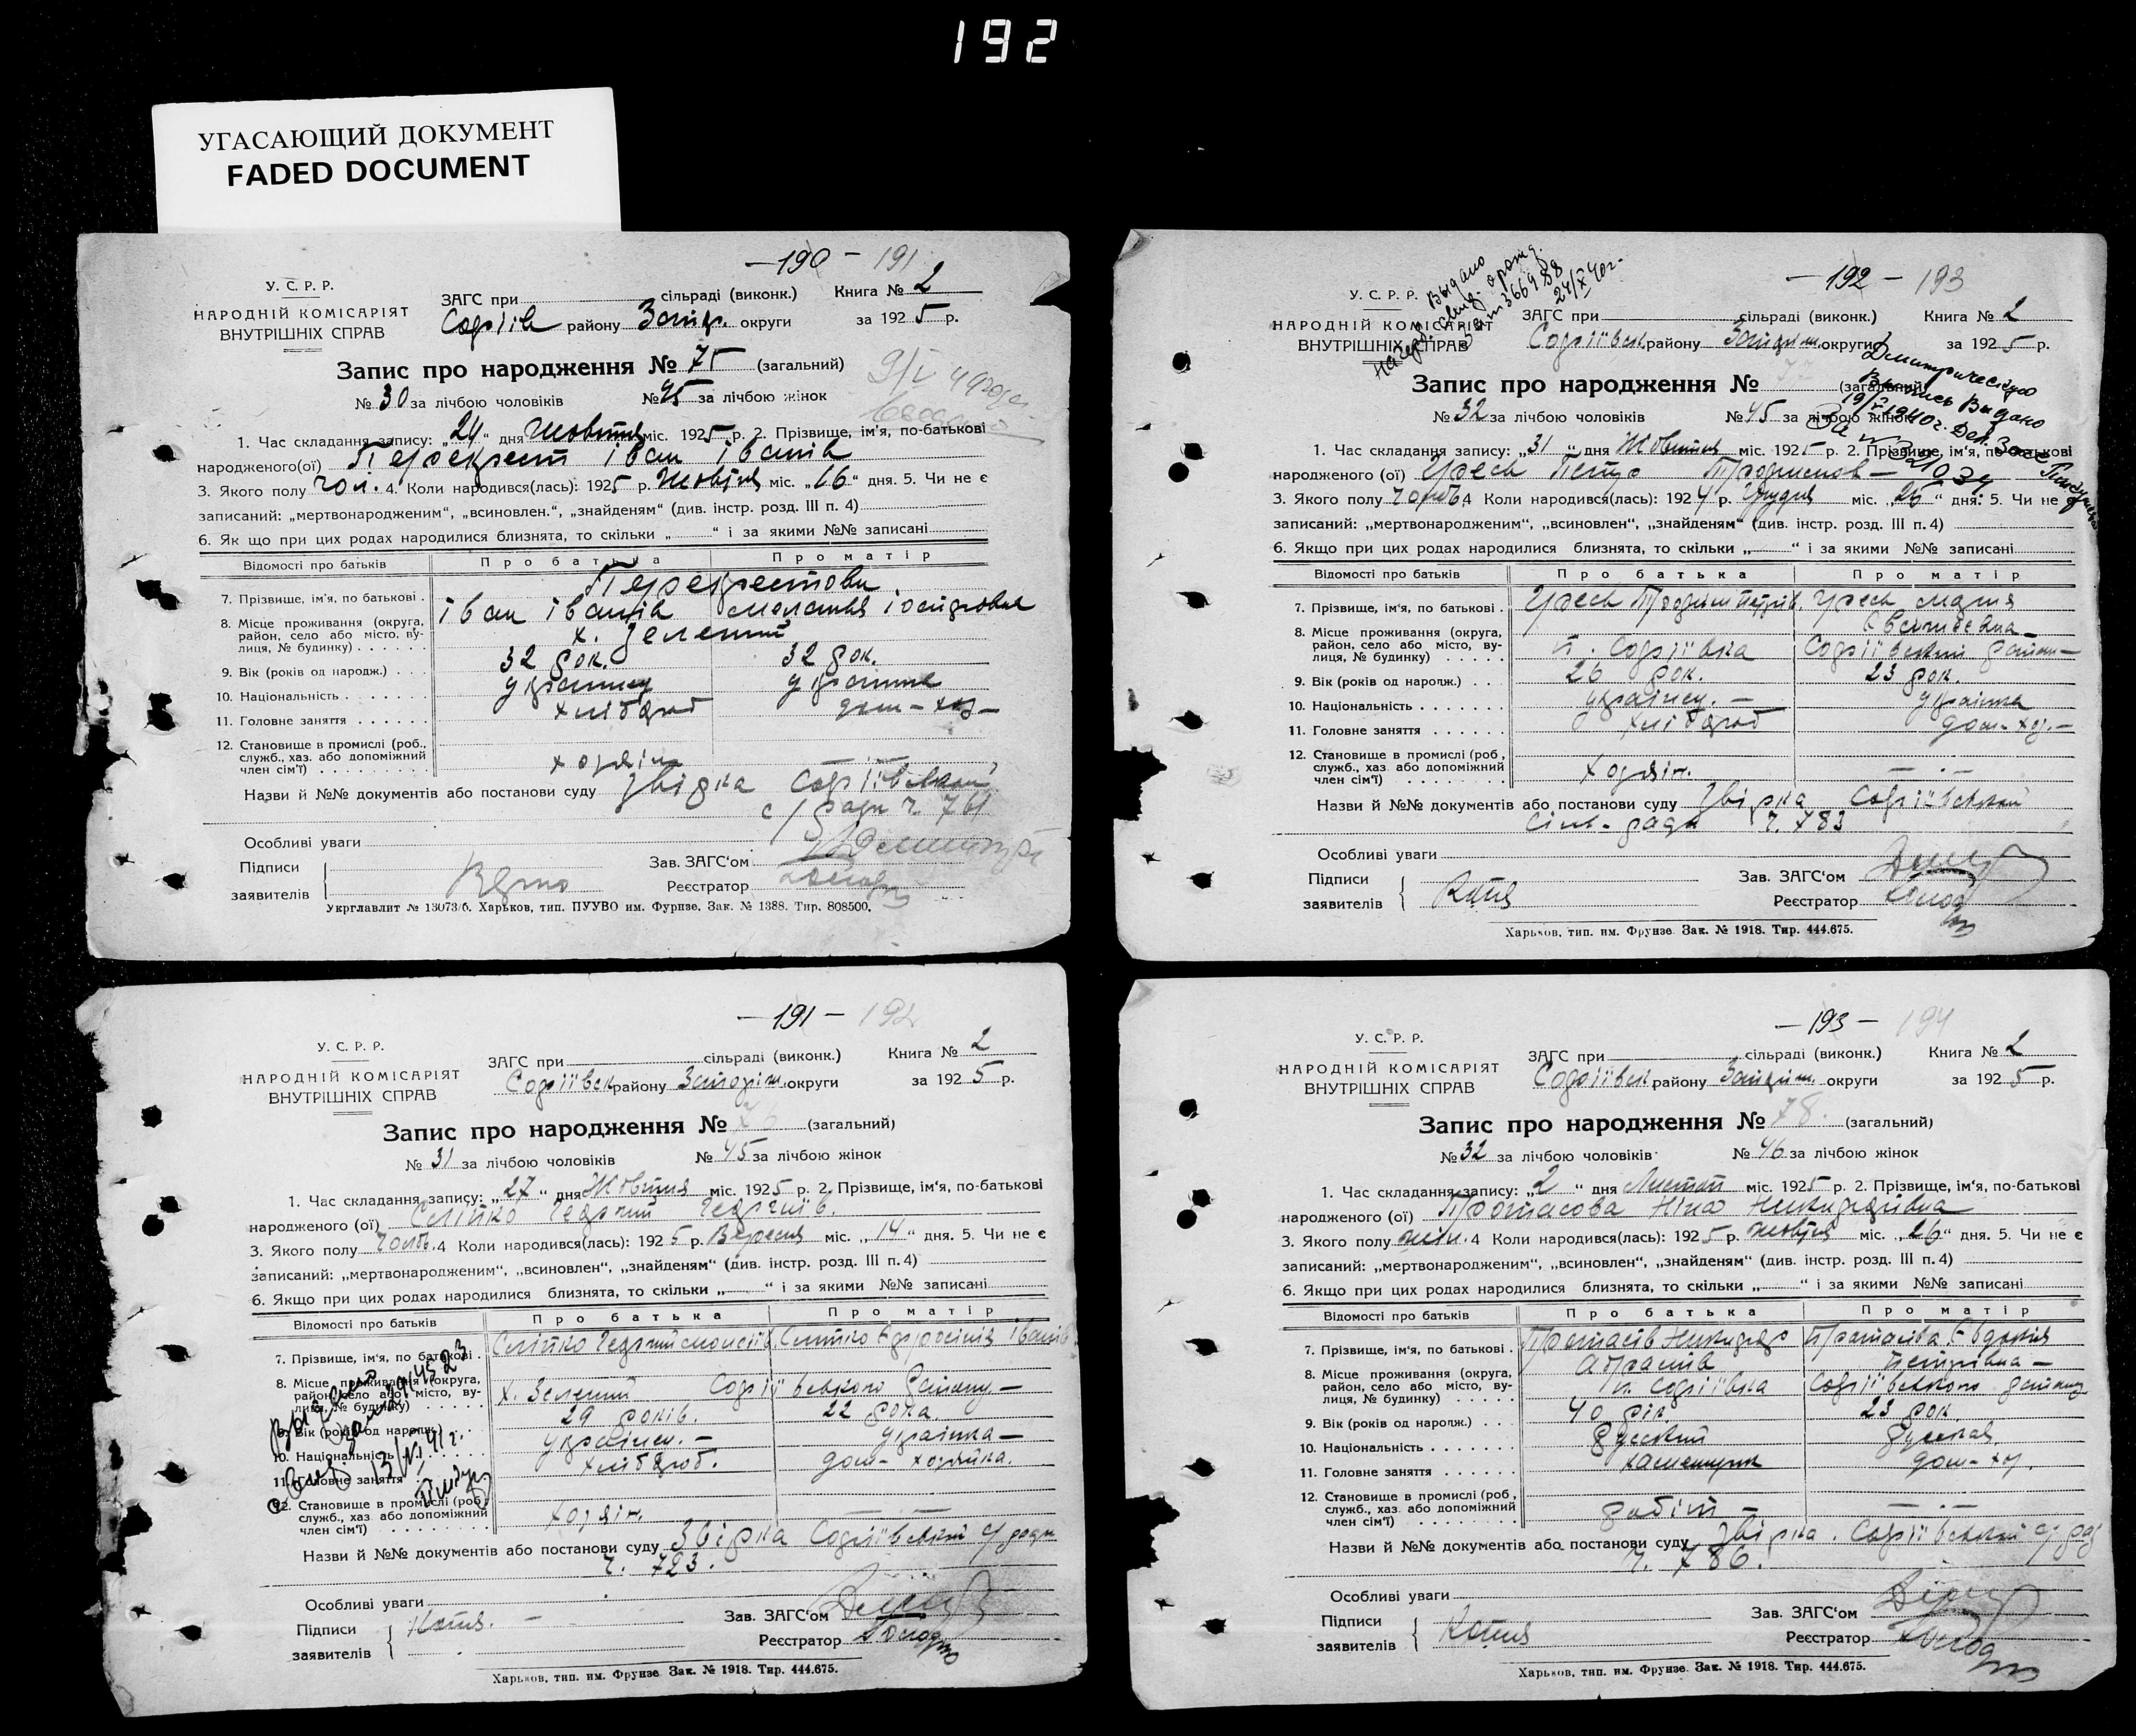 192
УГАСАЮЩИЙ ДОКУМЕНТ
FADED DOCUMENT
—190— 191
У. С. Р. Р.
НАРОДНІЙ КОМІСАРІЯТ
ВНУТРІШНІХ СПРАВ
ЗАГС при сільраді (виконк.) Книга № 2
району округи за 1925 р.
Запис про народження № 75 (загальний)
№ 30 за лічбою чоловіків № 45 за лічбою жінок
1. Час складання запису: „24“ дня Жовтня міс. 1925 р. 2. Прізвище, ім'я, по-батькові
народженого(ої) Перехрест Іван Іванів
3. Якого полу чол. 4. Коли народився(лась): 1925 р. Жовтня міс. „16“ дня. 5. Чи не є
записаний: „мертвонародженим“, „всиновлен.“, „знайденям“ (див. інстр. розд. III п. 4)
6. Як що при цих родах народилися близнята, то скільки „ “ і за якими №№ записані
Відомості про батьків Про батька Про матір
Перехрестови
7. Прізвище, ім'я, по батькові . Іван Іванів Меланья
8. Місце проживання (округа, х. Зелений
район, село або місто, ву-
лиця, № будинку)
9. Вік (років од народж.) 32 рок. 32 рок.
10. Національність
11. Головне заняття хлібороб дом-хоз—
12. Становище в промислі (роб., хозяїн
служб., хаз. або допоміжний
член сім'ї)
Назви й №№ документів або постанови суду Звірка Софіївської
с/ради ч. 761
Особливі уваги
Підписи
заявителів
Зав. ЗАГС'ом
Реєстратор
Укрглавліт № 13073/б. Харьков, тип. ПУУВО им. Фурнзе. Зак. № 1388. Тир. 808500.
—192— 193
Выдано
24/X 40г.
У. С. Р. Р.
НАРОДНІЙ КОМІСАРІЯТ
ВНУТРІШНІХ СПРАВ
ЗАГС при сільраді (виконк.) Книга № 2
Софіївськ району округи за 1925 р.
Запис про народження № 77 (загальний)
№ 32 за лічбою чоловіків № 45 за лічбою жінок
1. Час складання запису: „31“ дня Жовтня міс. 1925 р. 2. Прізвище, ім'я, по-батькові
народженого (ої) Петро
3. Якого полу чоловіч. 4 Коли народився(лась): 1924 р. Грудня міс. „25“ дня: 5. Чи не є
записаний: „мертвонародженим“, „всиновлен“, „знайденям“ (див. інстр. розд. III п. 4)
6. Якщо при цих родах народилися близнята, то скільки „ “ і за якими №№ записані
Відомості про батьків Про батька Про матір
7. Прізвище, ім'я, по батькові .
8. Місце проживання (округа, Софіївка Софіївський район—
район, село або місто, ву-
лиця, № будинку)
9. Вік (років од народж.) 26 рок. 23 рок.
10. Національність українец.— українка
11. Головне заняття хлібороб дом-хоз.—
12. Становище в промислі (роб, хозяїн.
служб., хаз. або допоміжний
член сім'ї)
Назви й №№ документів або постанови суду Звірка Софіївської
сіль-ради ч. 783
Особливі уваги
Підписи
заявителів
Зав. ЗАГС'ом
Реєстратор
Харьков, тип. им. Фрунзе Зак. № 1918. Тир. 444.675.
—191— 192
У. С. Р. Р.
НАРОДНІЙ КОМІСАРІЯТ
ВНУТРІШНІХ СПРАВ
ЗАГС при сільраді (виконк.) Книга № 2
Софіївськ району Запоріж. округи за 1925 р.
Запис про народження № 76 (загальний)
№ 31 за лічбою чоловіків № 45 за лічбою жінок
1. Час складання запису: „27“ дня Жовтня міс. 1925 р. 2. Прізвище, ім'я, по-батькові
народженого (ої)
3. Якого полу чоловіч. 4 Коли народився(лась): 1925 р. Вересня міс. „14“ дня. 5. Чи не є
записаний: „мертвонародженим“, „всиновлен“, „знайденям“ (див. інстр. розд. III п. 4)
6. Якщо при цих родах народилися близнята, то скільки „ “ і за якими №№ записані
Відомості про батьків Про батька Про матір
7. Прізвище, ім'я, по батькові .
8. Місце проживання (округа, х. Зелений Софіївського району—
район, село або місто, ву-
лиця, № будинку)
9. Вік (років од народж.) 29 років. 22 рока.
10. Національність українец.— українка—
11. Головне заняття хлібороб. дом-хозяйка.
12. Становище в промислі (роб, хозяїн.
служб., хаз. або допоміжний
член сім'ї)
Назви й №№ документів або постанови суду Звірка Софіївської с/ради
ч. 723.
Особливі уваги
Підписи
заявителів
Зав. ЗАГС'ом
Реєстратор
Харьков, тип. им. Фрунзе Зак. № 1918. Тир. 444.675.
—193— 194
У. С. Р. Р.
НАРОДНІЙ КОМІСАРІЯТ
ВНУТРІШНІХ СПРАВ
ЗАГС при сільраді (виконк.) Книга № 2
Софіївськ району округи за 1925 р.
Запис про народження № 78. (загальний)
№ 32 за лічбою чоловіків № 46 за лічбою жінок
1. Час складання запису: „2“ дня Листоп міс. 1925 р. 2. Прізвище, ім'я, по-батькові
народженого (ої) Протасова Ніна
3. Якого полу жін. 4 Коли народився(лась): 1925 р. Жовтня міс. „26“ дня. 5. Чи не є
записаний: „мертвонародженим“, „всиновлен“, „знайденям“ (див. інстр. розд. III п. 4)
6. Якщо при цих родах народилися близнята, то скільки „ “ і за якими №№ записані
Відомості про батьків Про батька Про матір
7. Прізвище, ім'я, по батькові . Протасів Протасіва Євдокія
Петрівна—
8. Місце проживання (округа, Софіївка Софіївського району
район, село або місто, ву-
лиця, № будинку)
9. Вік (років од народж.) 40 рік 23 рок.
10. Національність Русский Русская
11. Головне заняття дом-хоз.
12. Становище в промислі (роб, робіт—
служб., хаз. або допоміжний
член сім'ї)
Назви й №№ документів або постанови суду Звірка. Софіївської с/рад
ч. 786.
Особливі уваги
Підписи
заявителів
Зав. ЗАГС'ом
Реєстратор
Харьков, тип. им. Фрунзе Зак. № 1918. Тир. 444.675.